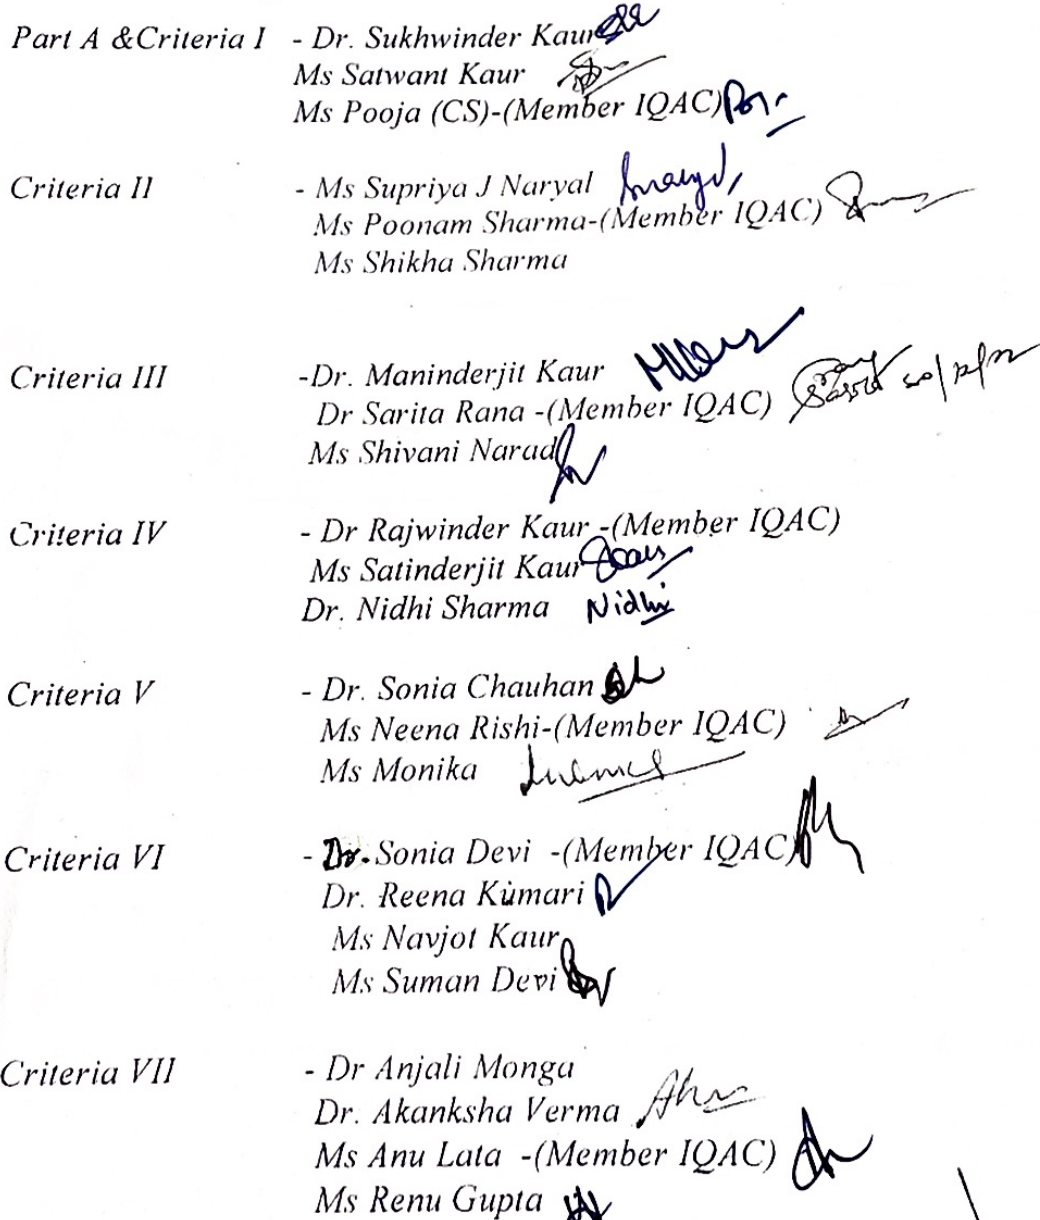 Part A &Criteria I - Dr. Sukhwinder Kaur
Ms Satwant Kaur
Ms Pooja (CS)-(Member IQAC)
Criteria II - Ms Supriya J Naryal
Ms Poonam Sharma-(Member IQAC)
Ms Shikha Sharma
Criteria III -Dr. Maninderjit Kaur
Dr Sarita Rana -(Member IQAC)
Ms Shivani Narad
Criteria IV - Dr Rajwinder Kaur -(Member IQAC)
Ms Satinderjit Kaur
Dr. Nidhi Sharma Nidhi
Criteria V - Dr. Sonia Chauhan
Ms Neena Rishi-(Member IQAC)
Ms Monika
Criteria VI - Dr. Sonia Devi -(Member IQAC)
Dr. Reena Kumari
Ms Navjot Kaur
Ms Suman Devi
Criteria VII - Dr Anjali Monga
Dr. Akanksha Verma
Ms Anu Lata -(Member IQAC)
Ms Renu Gupta